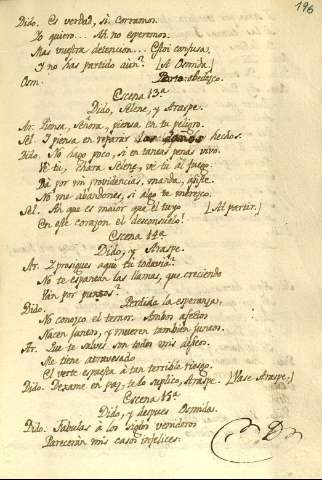 196
Dido. Es verdad, si. Corramos.
Yo quiero... Ah no esperemos.
Mas vuestra detencion... Estoi confusa,
Y no has partido aún? [A Osmida.]
Osm. Parto: obedezco.
Escena 13ª
Dido, Selene, y Araspe.
Ar. Piensa, Señora, piensa en tu peligro.
Sel. I piensa en reparar los daños hechos.
Dido. No hago poco, si en tantas penas vivo.
Vé tu, chara Selene, vé tu al fuego.
Da por mi providencias, manda, asiste.
No me abandones, si algo te merezco.
Sel. Ah que es maior que el tuyo [Al partir.]
En este corazon el desconsuelo!
Escena 14ª
Dido, y Araspe.
Ar. I prosigues aqui tu todavia?
No te espantan las llamas, que creciendo
Van por puntos?
Dido. Perdida la esperanza,
No conozco el temor. Ambos afectos
Nacen juntos, y mueren tambien juntos.
Ar. Que te salves son todos mis afectos.
Me tiene atravesado
El verte expuesta à tan terrible riesgo.
Dido. Dexame en paz, te lo suplico, Araspe. [Vase Araspe.]
Escena 15ª
Dido, y despues Osmida.
Dido. Fabulas à los siglos venideros
Pareceràn mis casos infelices.